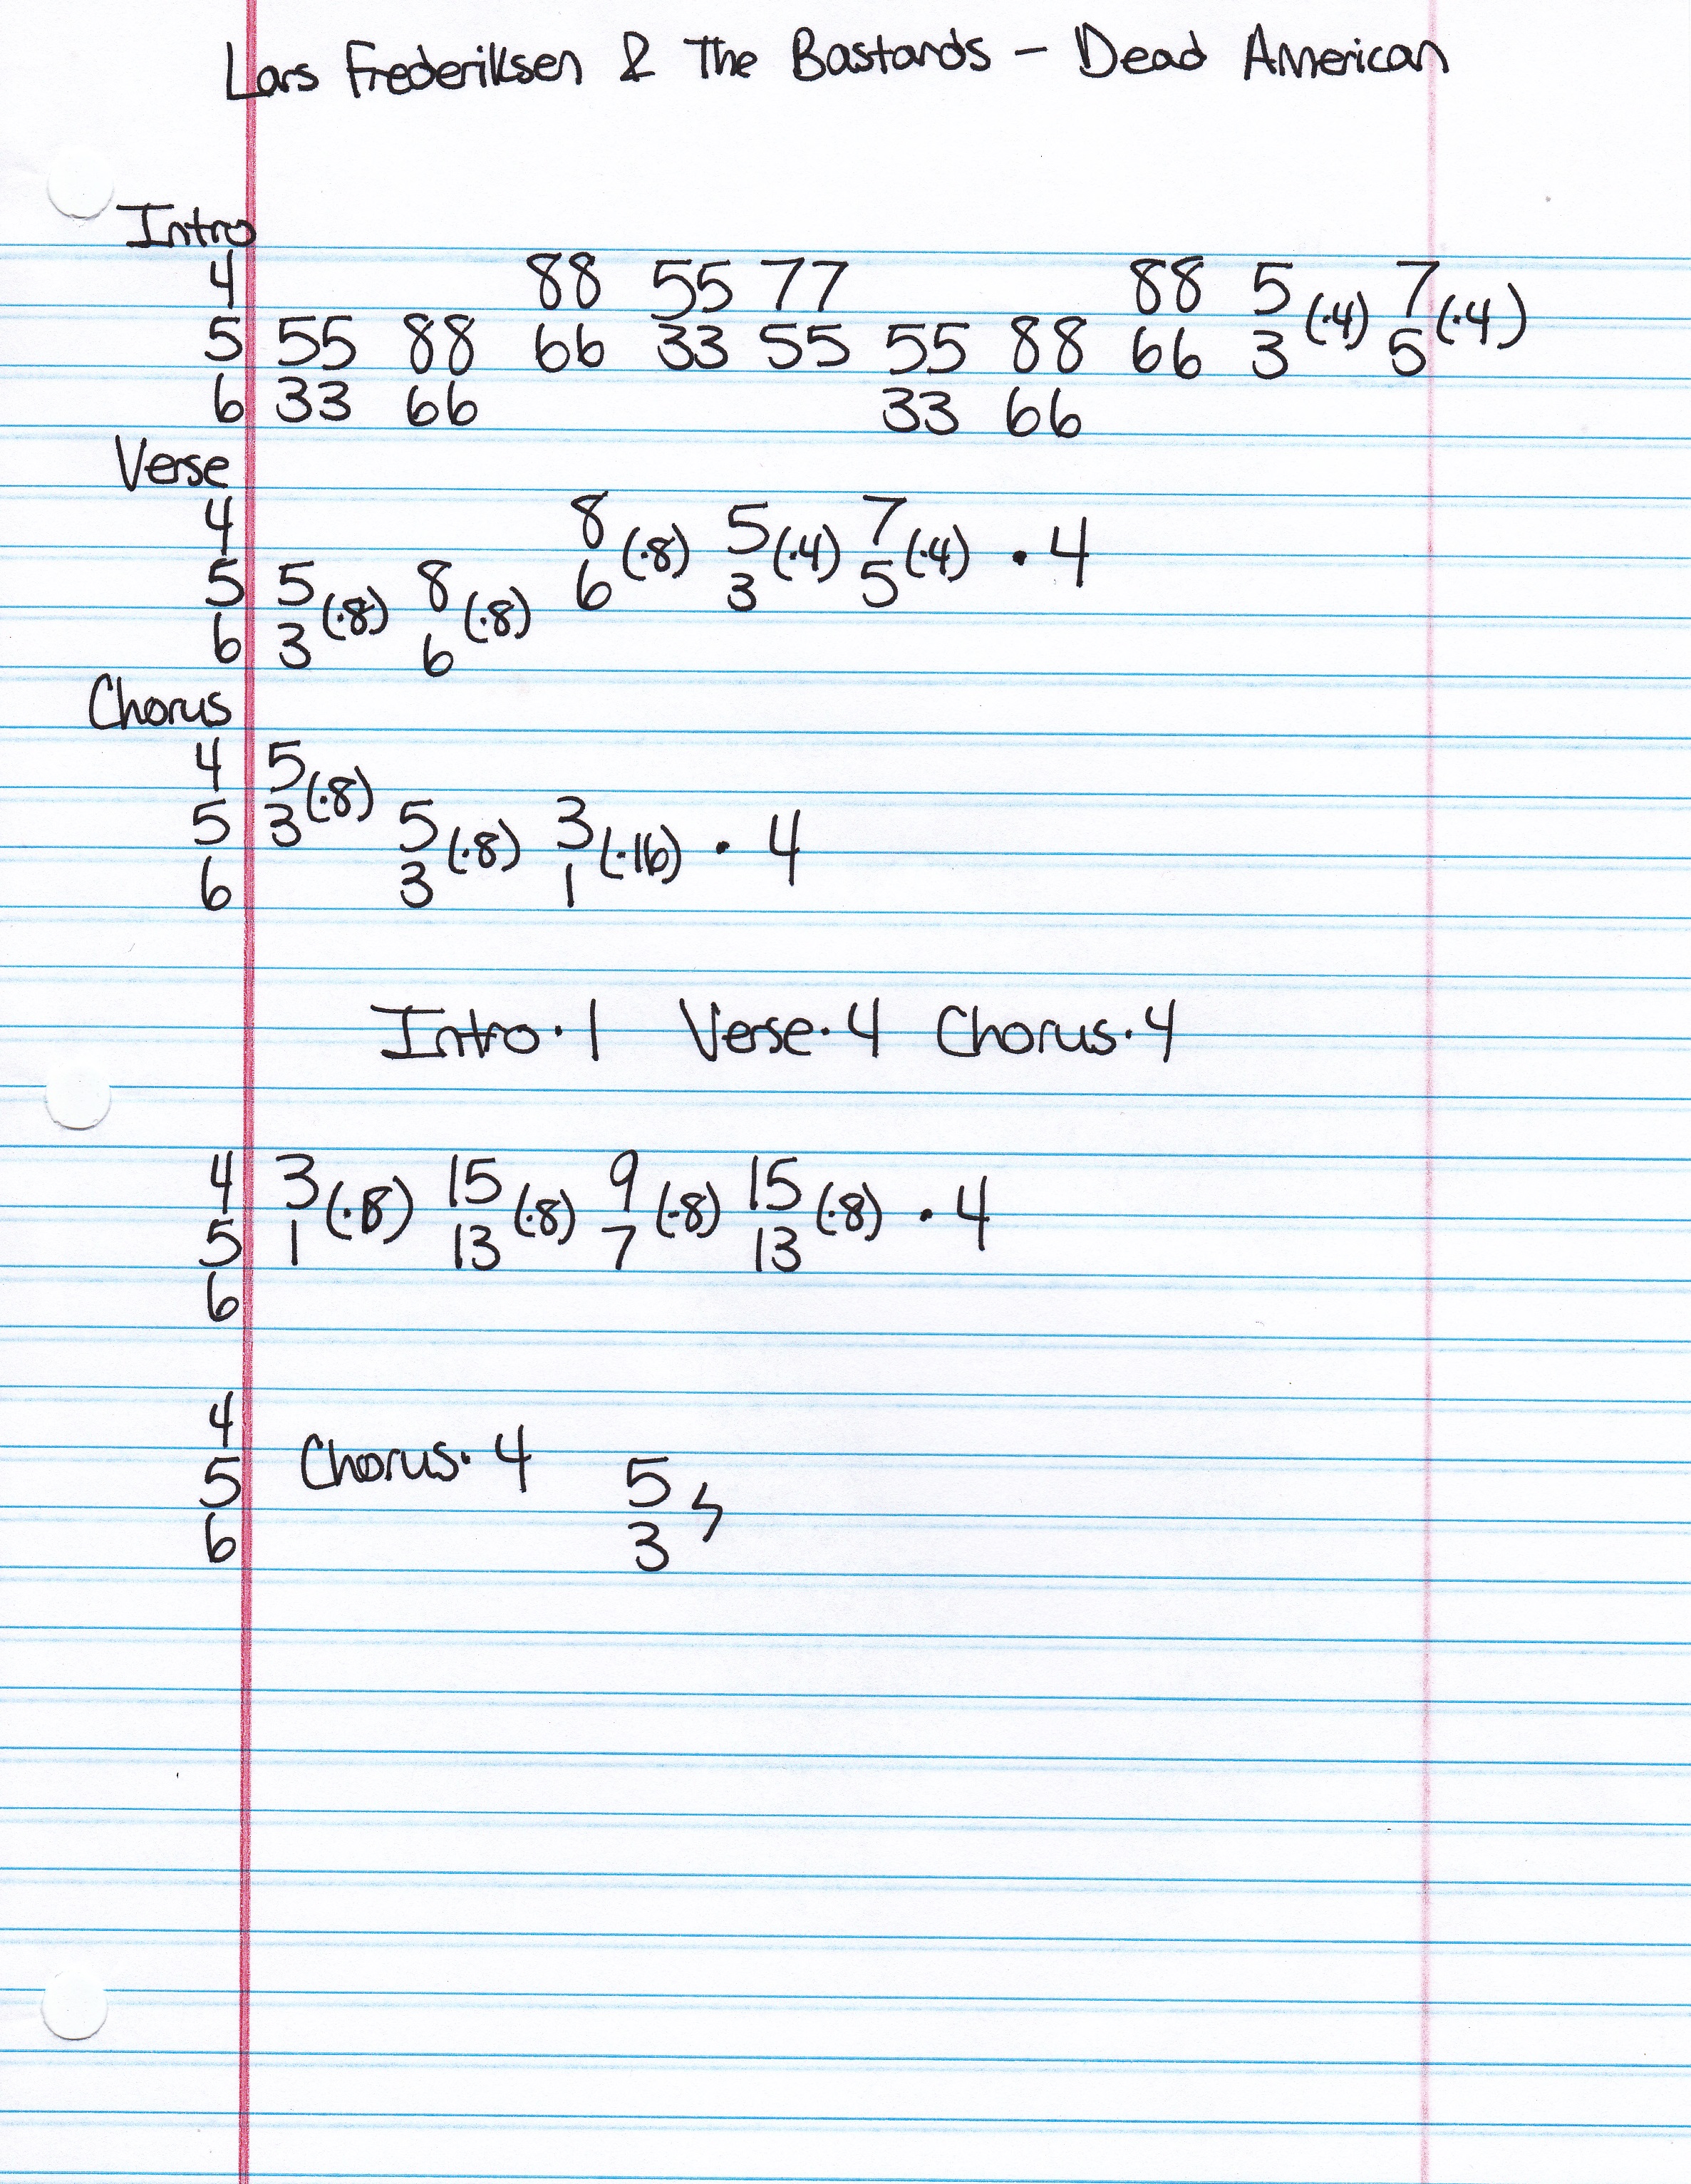 Lars Frederiksen & The Bastards - Dead American
Intro
4 88 55 77 88 5 (·4) 7 (·4)
5 55 88 66 33 55 55 88 66 3 5
6 33 66 33 66
Verse
4 8 (·8) 5 (·4) 7 (·4) · 4
5 5 (·8) 8 (·8) 6 3 5
6 3 6
Chorus
4 5 (·8)
5 3 5 (·8) 3 (·16) · 4
6 3 1
Intro·1 Verse·4 Chorus·4
4 3 (·8) 15 (·8) 9 (·8) 15 (·8) · 4
5 1 13 7 13
6
4
5 Chorus·4 5
6 3